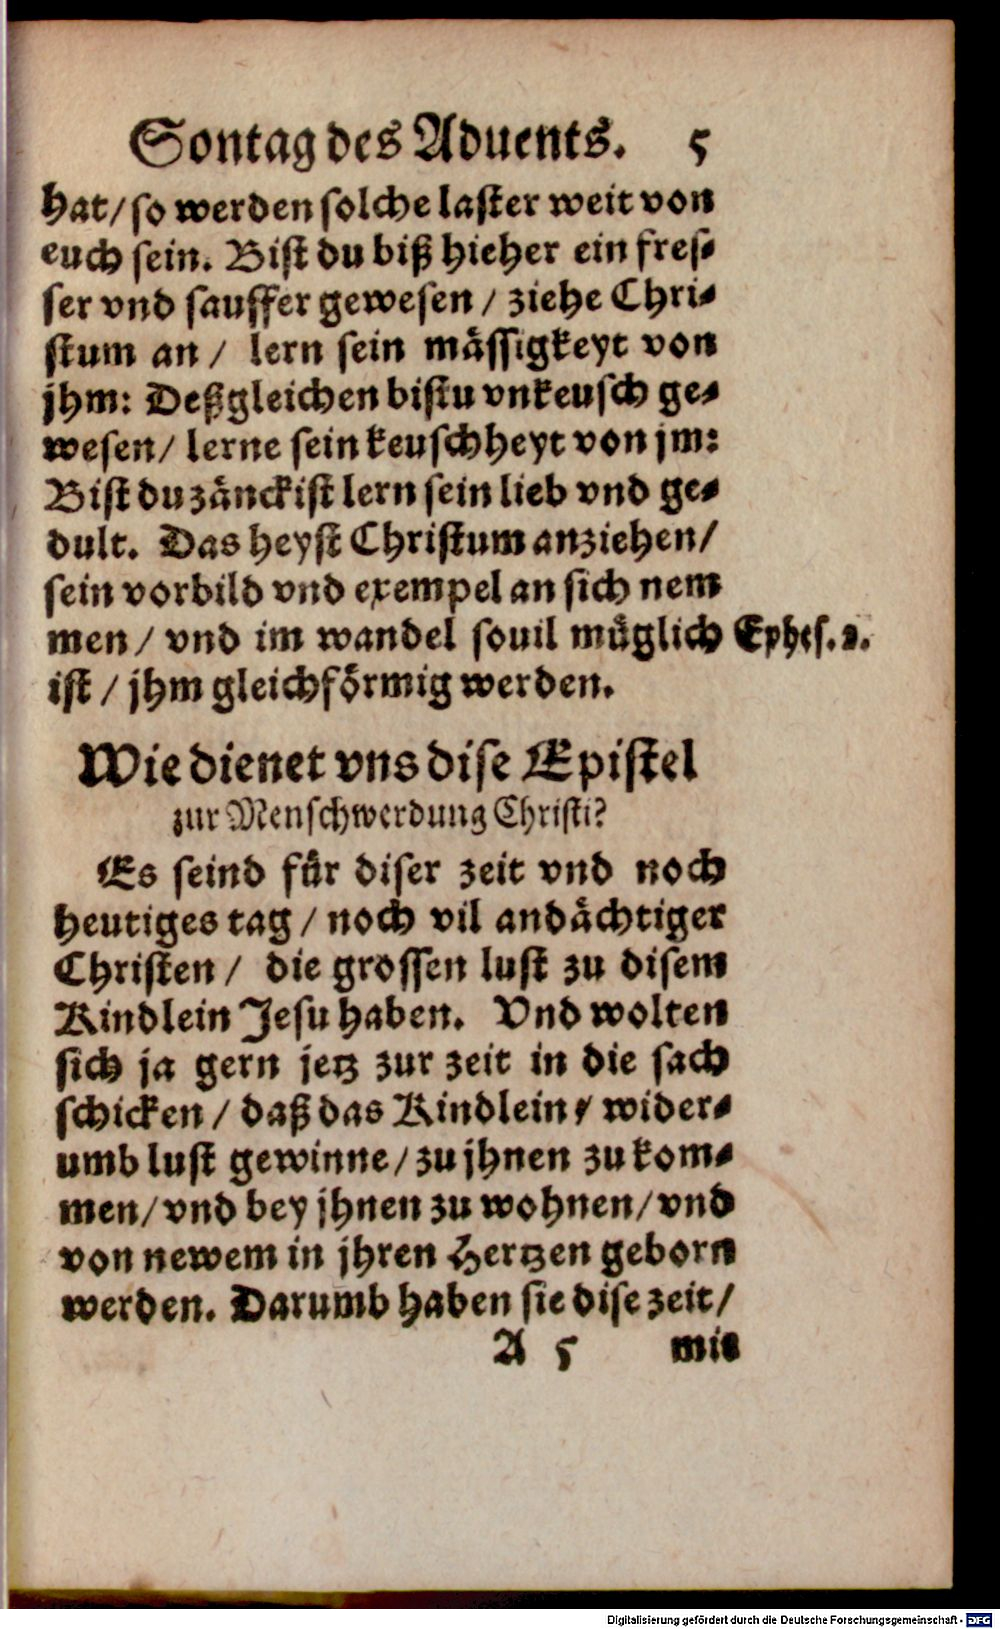 Sontag des Aduents. 5
hat/ so werden solche laster weit von
euch sein. Bist du biß hieher ein fres-
ser vnd sauffer gewesen / ziehe Chri-
stum an / lern sein mässigkeyt von
jhm: Deßgleichen bistu vnkeusch ge-
wesen/ lerne sein keuschheyt von jm:
Bist du zänckist lern sein lieb vnd ge-
dult. Das heyst Christum anziehen/
sein vorbild vnd exempel an sich nem
men / vnd im wandel souil müglich Ephes. 2.
ist / jhm gleichförmig werden.
Wie dienet vns dise Epistel
zur Menschwerdung Christi?
Es seind für diser zeit vnd noch
heutiges tag / noch vil andächtiger
Christen / die grossen lust zu disem
Kindlein Jesu haben. Vnd wolten
sich ja gern jetz zur zeit in die sach
schicken / daß das Kindlein / wider-
umb lust gewinne / zu jhnen zu kom-
men/ vnd bey jhnen zu wohnen/ vnd
von newem in jhren Hertzen geborn
werden. Darumb haben sie dise zeit/
A 5 mit
Digitalisierung gefördert durch die Deutsche Forschungsgemeinschaft - DFG